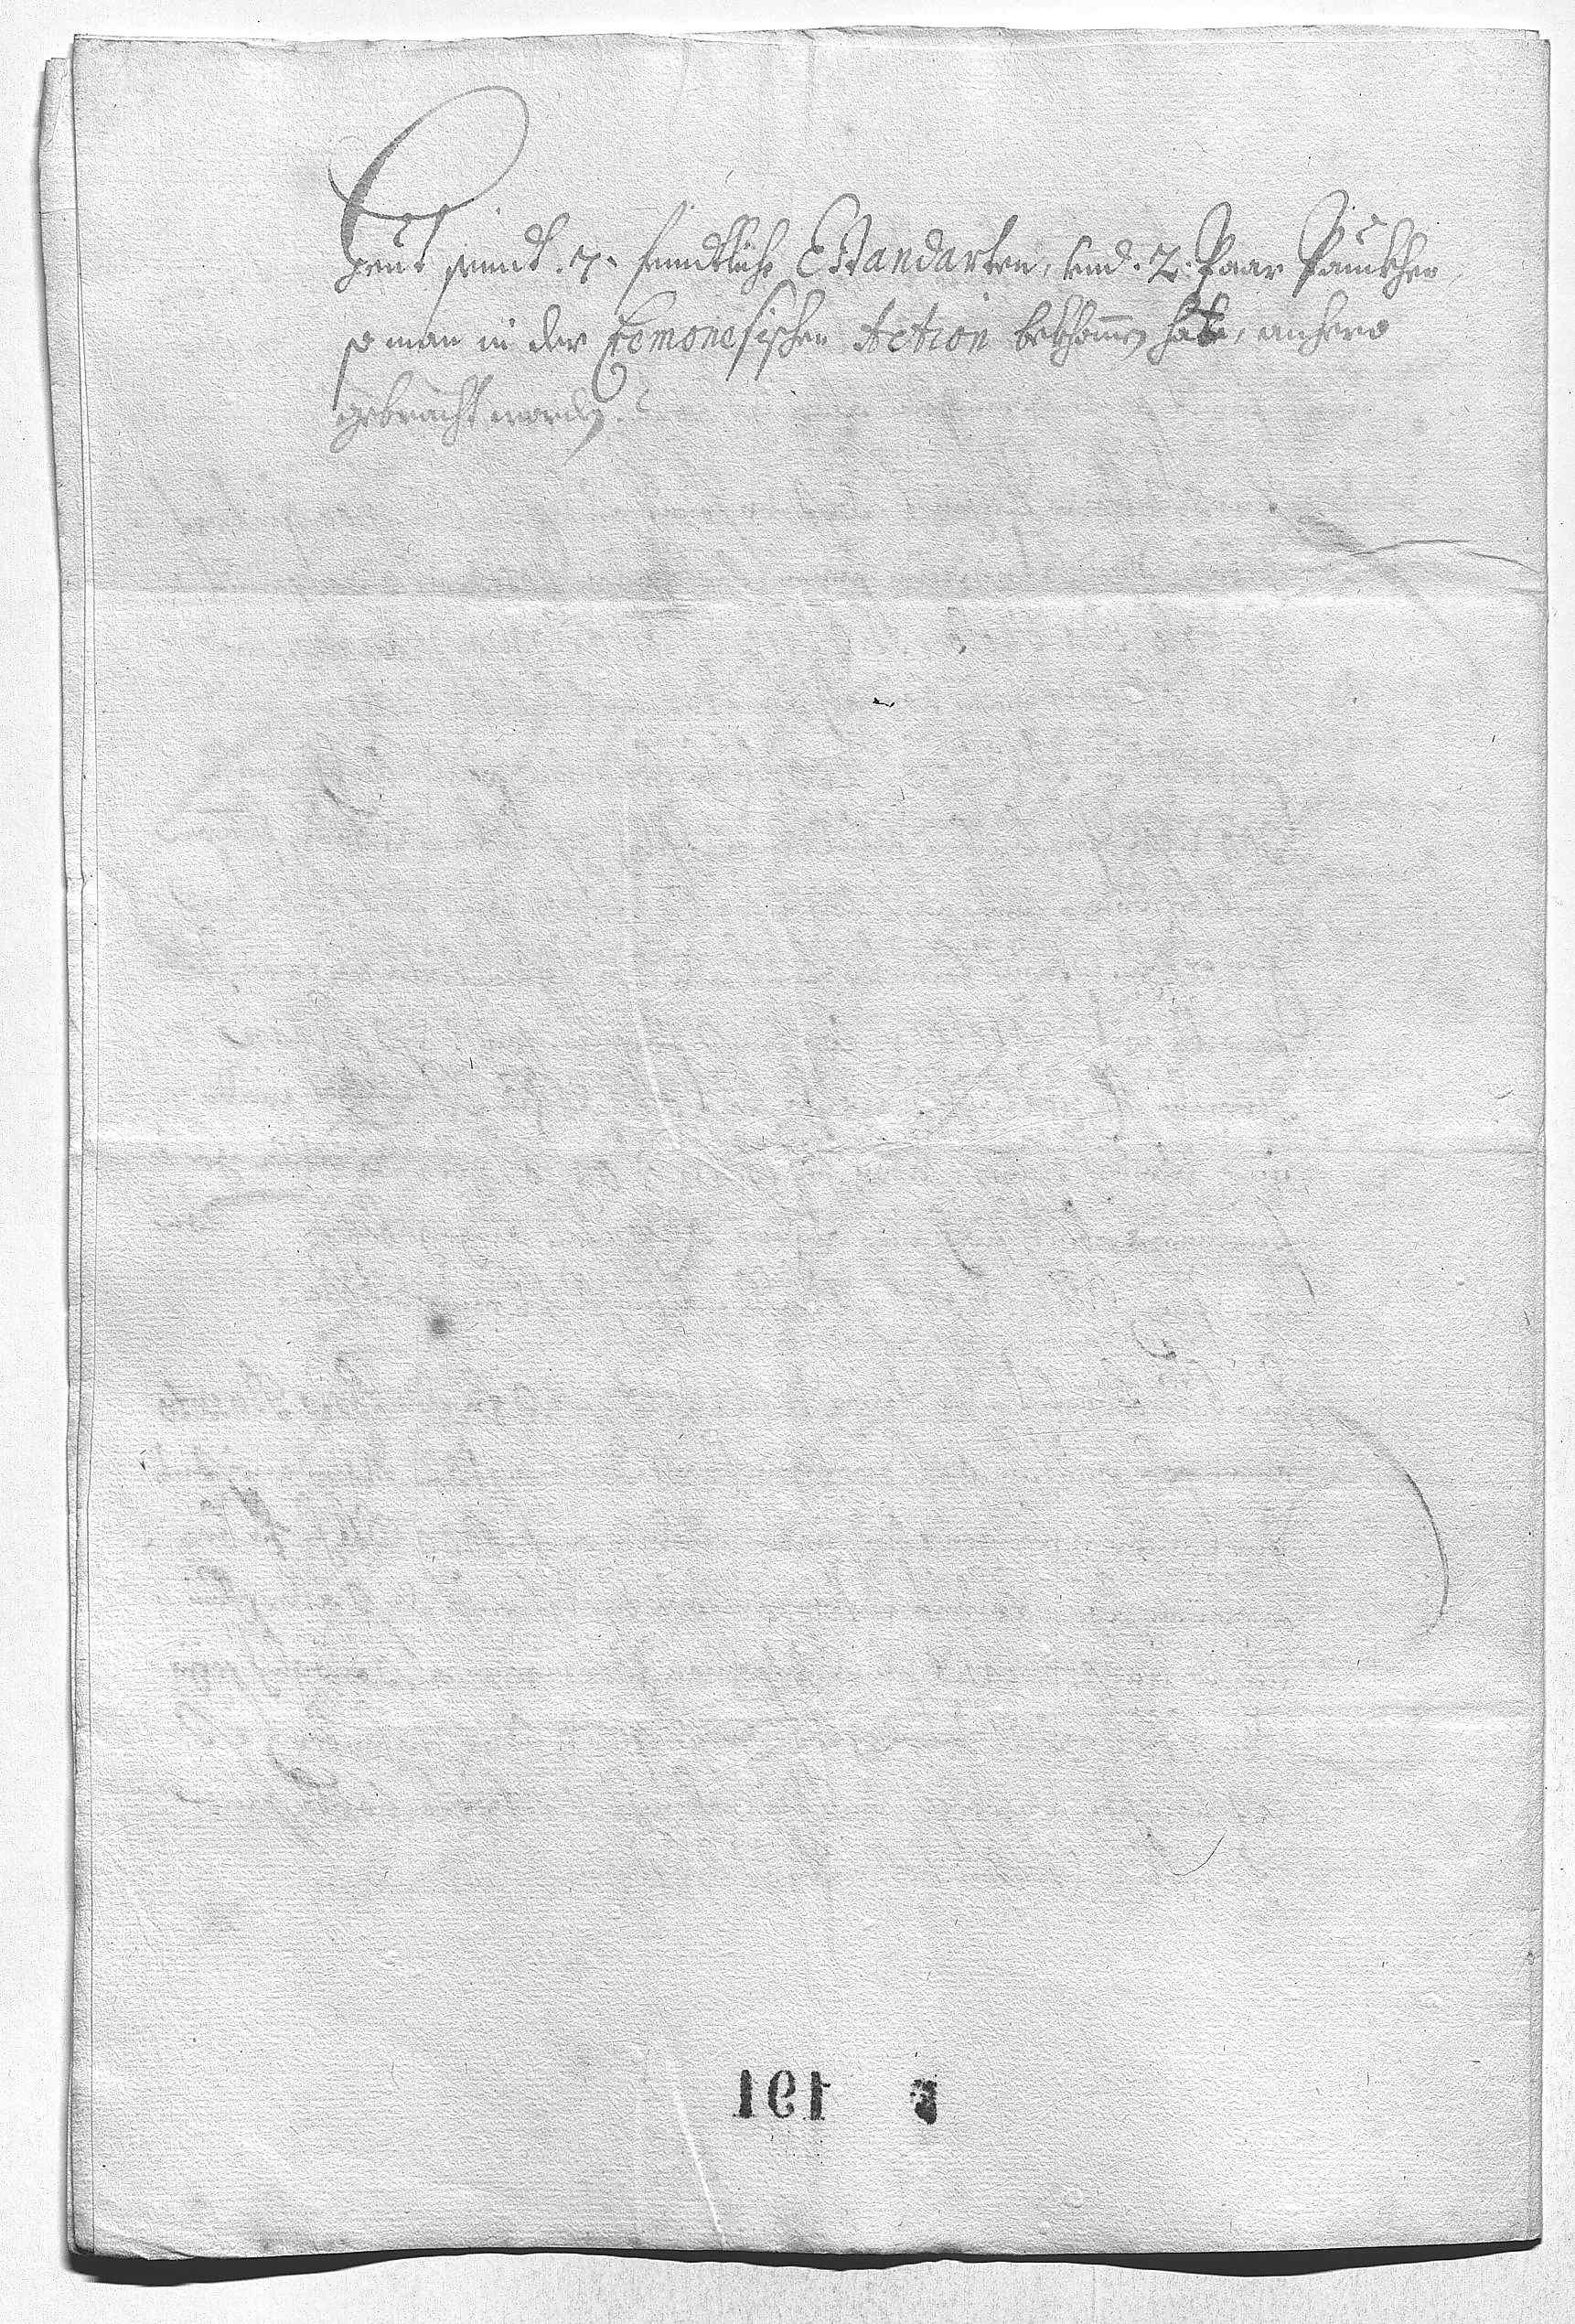 Heut seindt .7. feindtliche Estandarten, vnd .2. Paar Pauckhen
so man in der Cremonesischen Action bekhommen hat, anhero
gebracht worden.
191